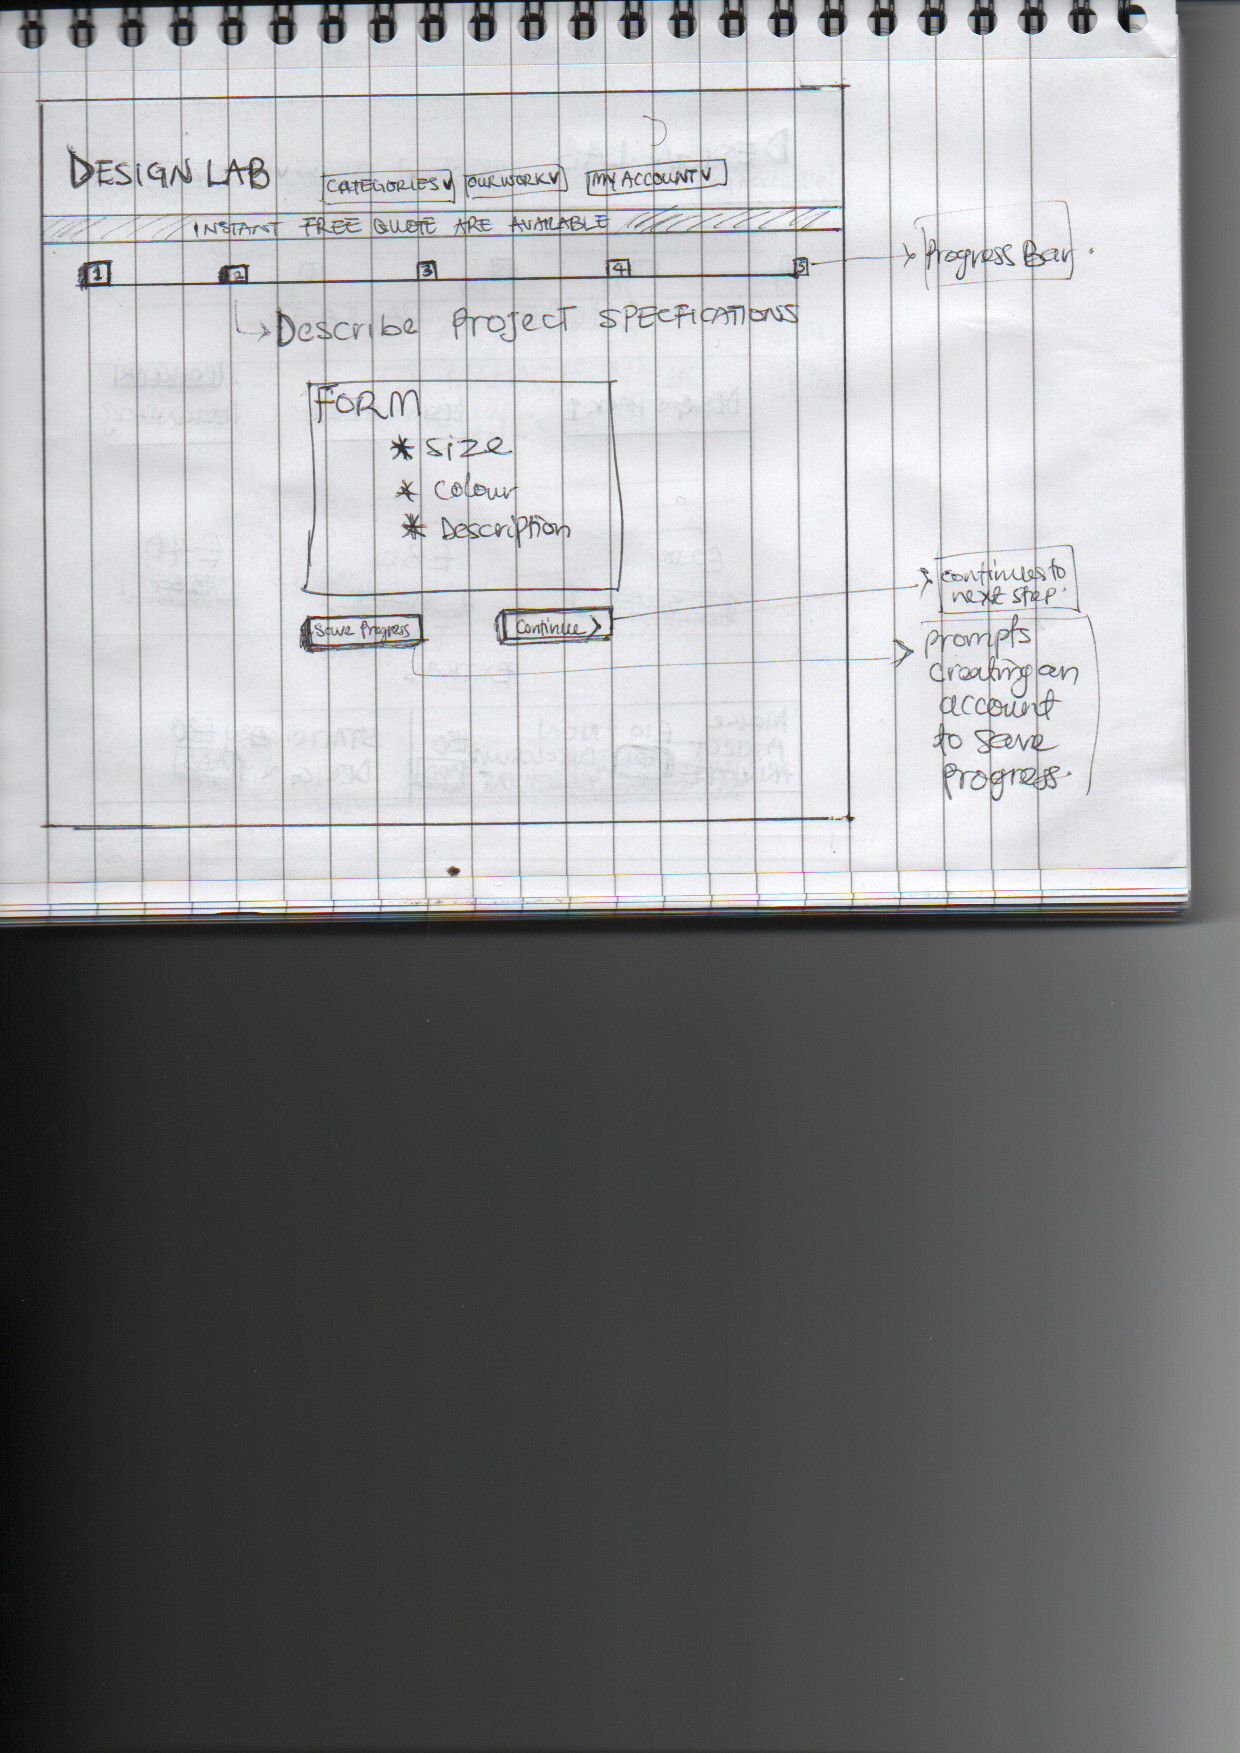 DESIGN LAB
CATEGORIES OUR WORK MY ACCOUNT
INSTANT FREE QUOTE ARE AVAILABLE
1 2 3 4 5
Progress Bar.
Describe Project SPECFICATIONS
FORM
* Size
* Colour
* Description
Save Progress
Continue >
continues to
next step.
prompts
creating an
account
to save
progress.